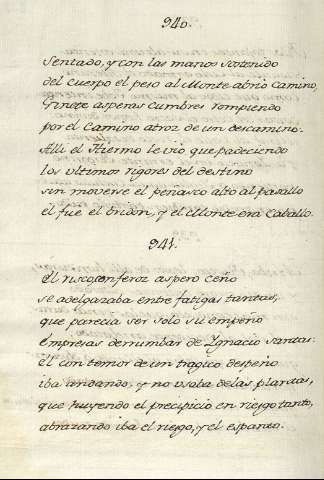 940.
Sentado, y con las manos sostenido
del Cuerpo el peso al Monte abrio Camino,
Ginete asperas Cumbres rompiendo
por el Camino atroz de un descamino.
Alli el Hiermo le vio que padeciendo
los ultimos rigores del destino
sin moverse el peñasco alto al pasallo
el fue el bridon, y el Monte era Caballo.
941.
El risco con feroz aspero Ceño
se adelgazaba entre fatigas tantas,
que parecia ser solo su empeño
empresas derrumbar de Ygnacio santas:
el con temor de un tragico despeño
iba andando, y no usaba de las plantas,
que huyendo el precipicio en riesgo tanto,
abrazando iba el riesgo, y el espanto.